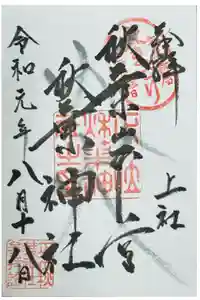 奉拝
上社
秋葉山本宮
秋葉神社
令和元年八月十八日